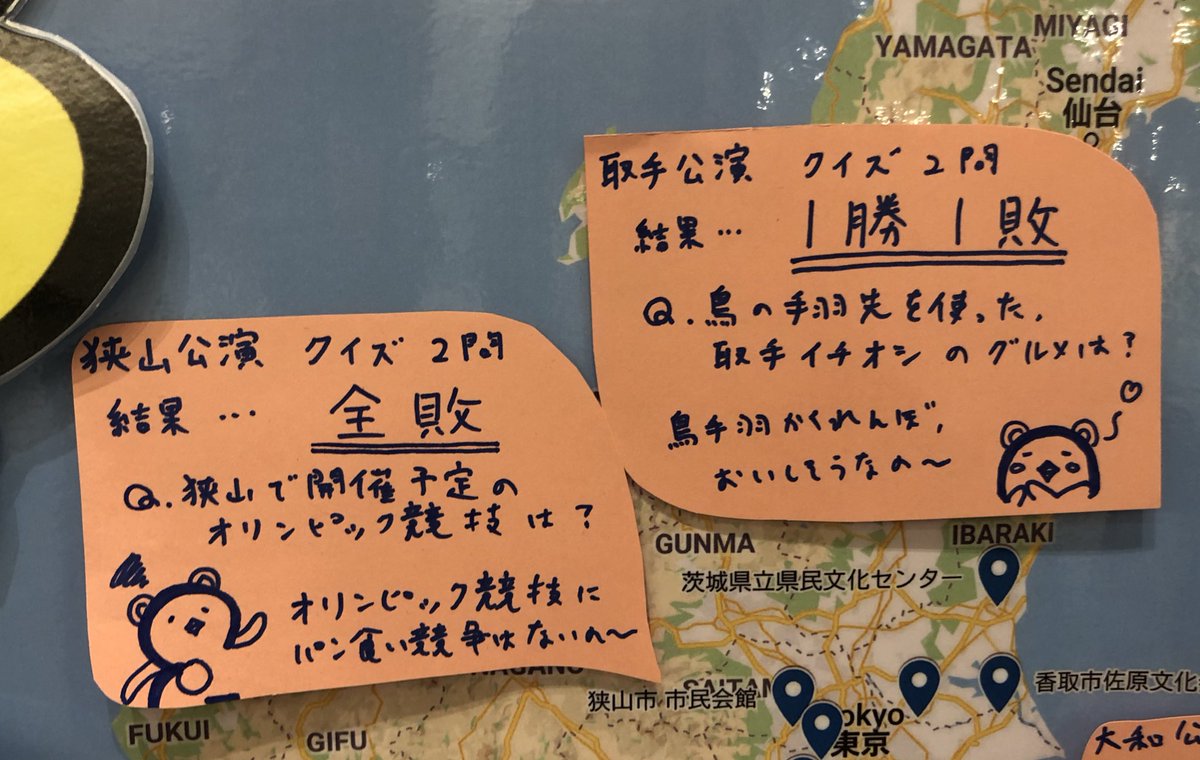 MIYAGI
YAMAGATA
Sendai
仙台
取手公演 クイズ2問
結果… 1勝1敗
Q.鳥の手羽先を使った、
取手イチオシのグルメは?
鳥手羽かくれんぼ、
おいしそうなの～
狭山公演 クイズ2問
結果… 全敗
Q.狭山で開催予定の
オリンピック競技は?
オリンピック競技に
パン食い競争はないの～
GUNMA
IBARAKI
茨城県立県民文化センター
NAGANO
SAITAM
狭山市 市民会館
香取市佐原文化
okyo
東京
FUKUI
GIFU
大和公